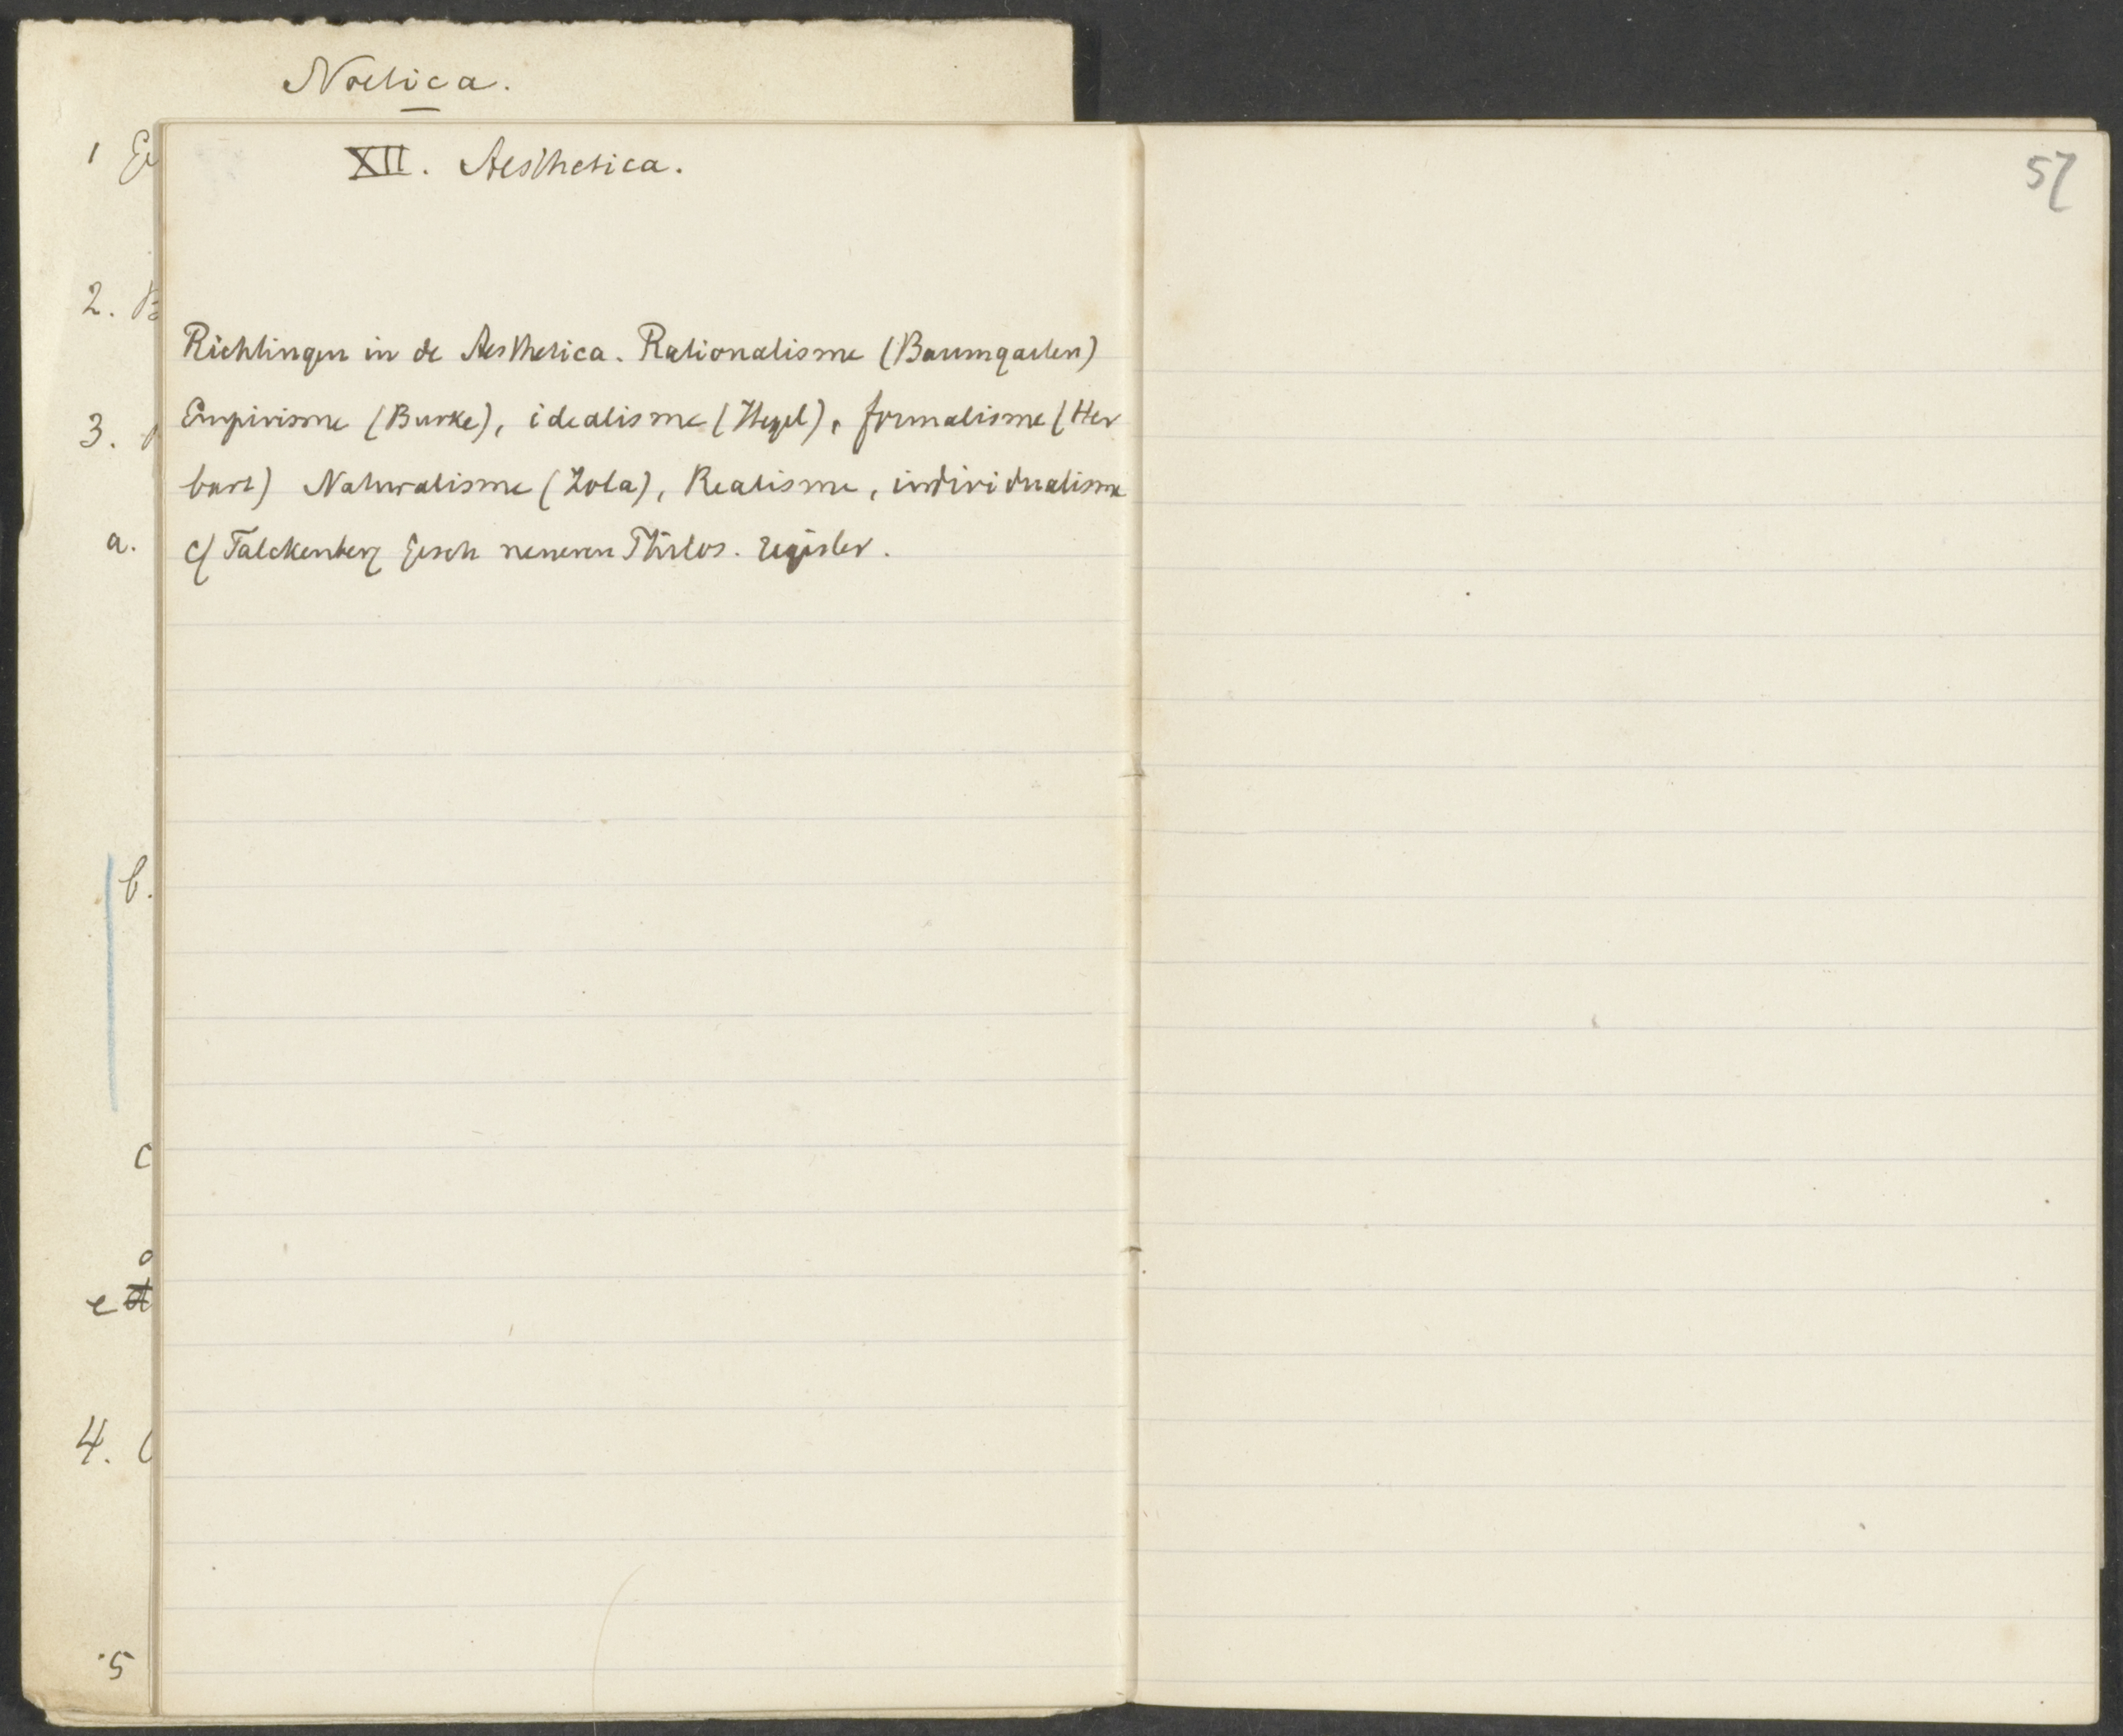 Noetica.
1
2. B
3.
a.
b.
c
d
e
4.
5
XII. Aesthetica.
Richtingen in de Aesthetica. Rationalisme (Baumgarten)
Empirisme (Burke), idealisme (Hegel), formalisme (Her
bart) Naturalisme (Zola), Realisme, individualisme
cf Falckenberg Gesch neueren Philos. register.
57